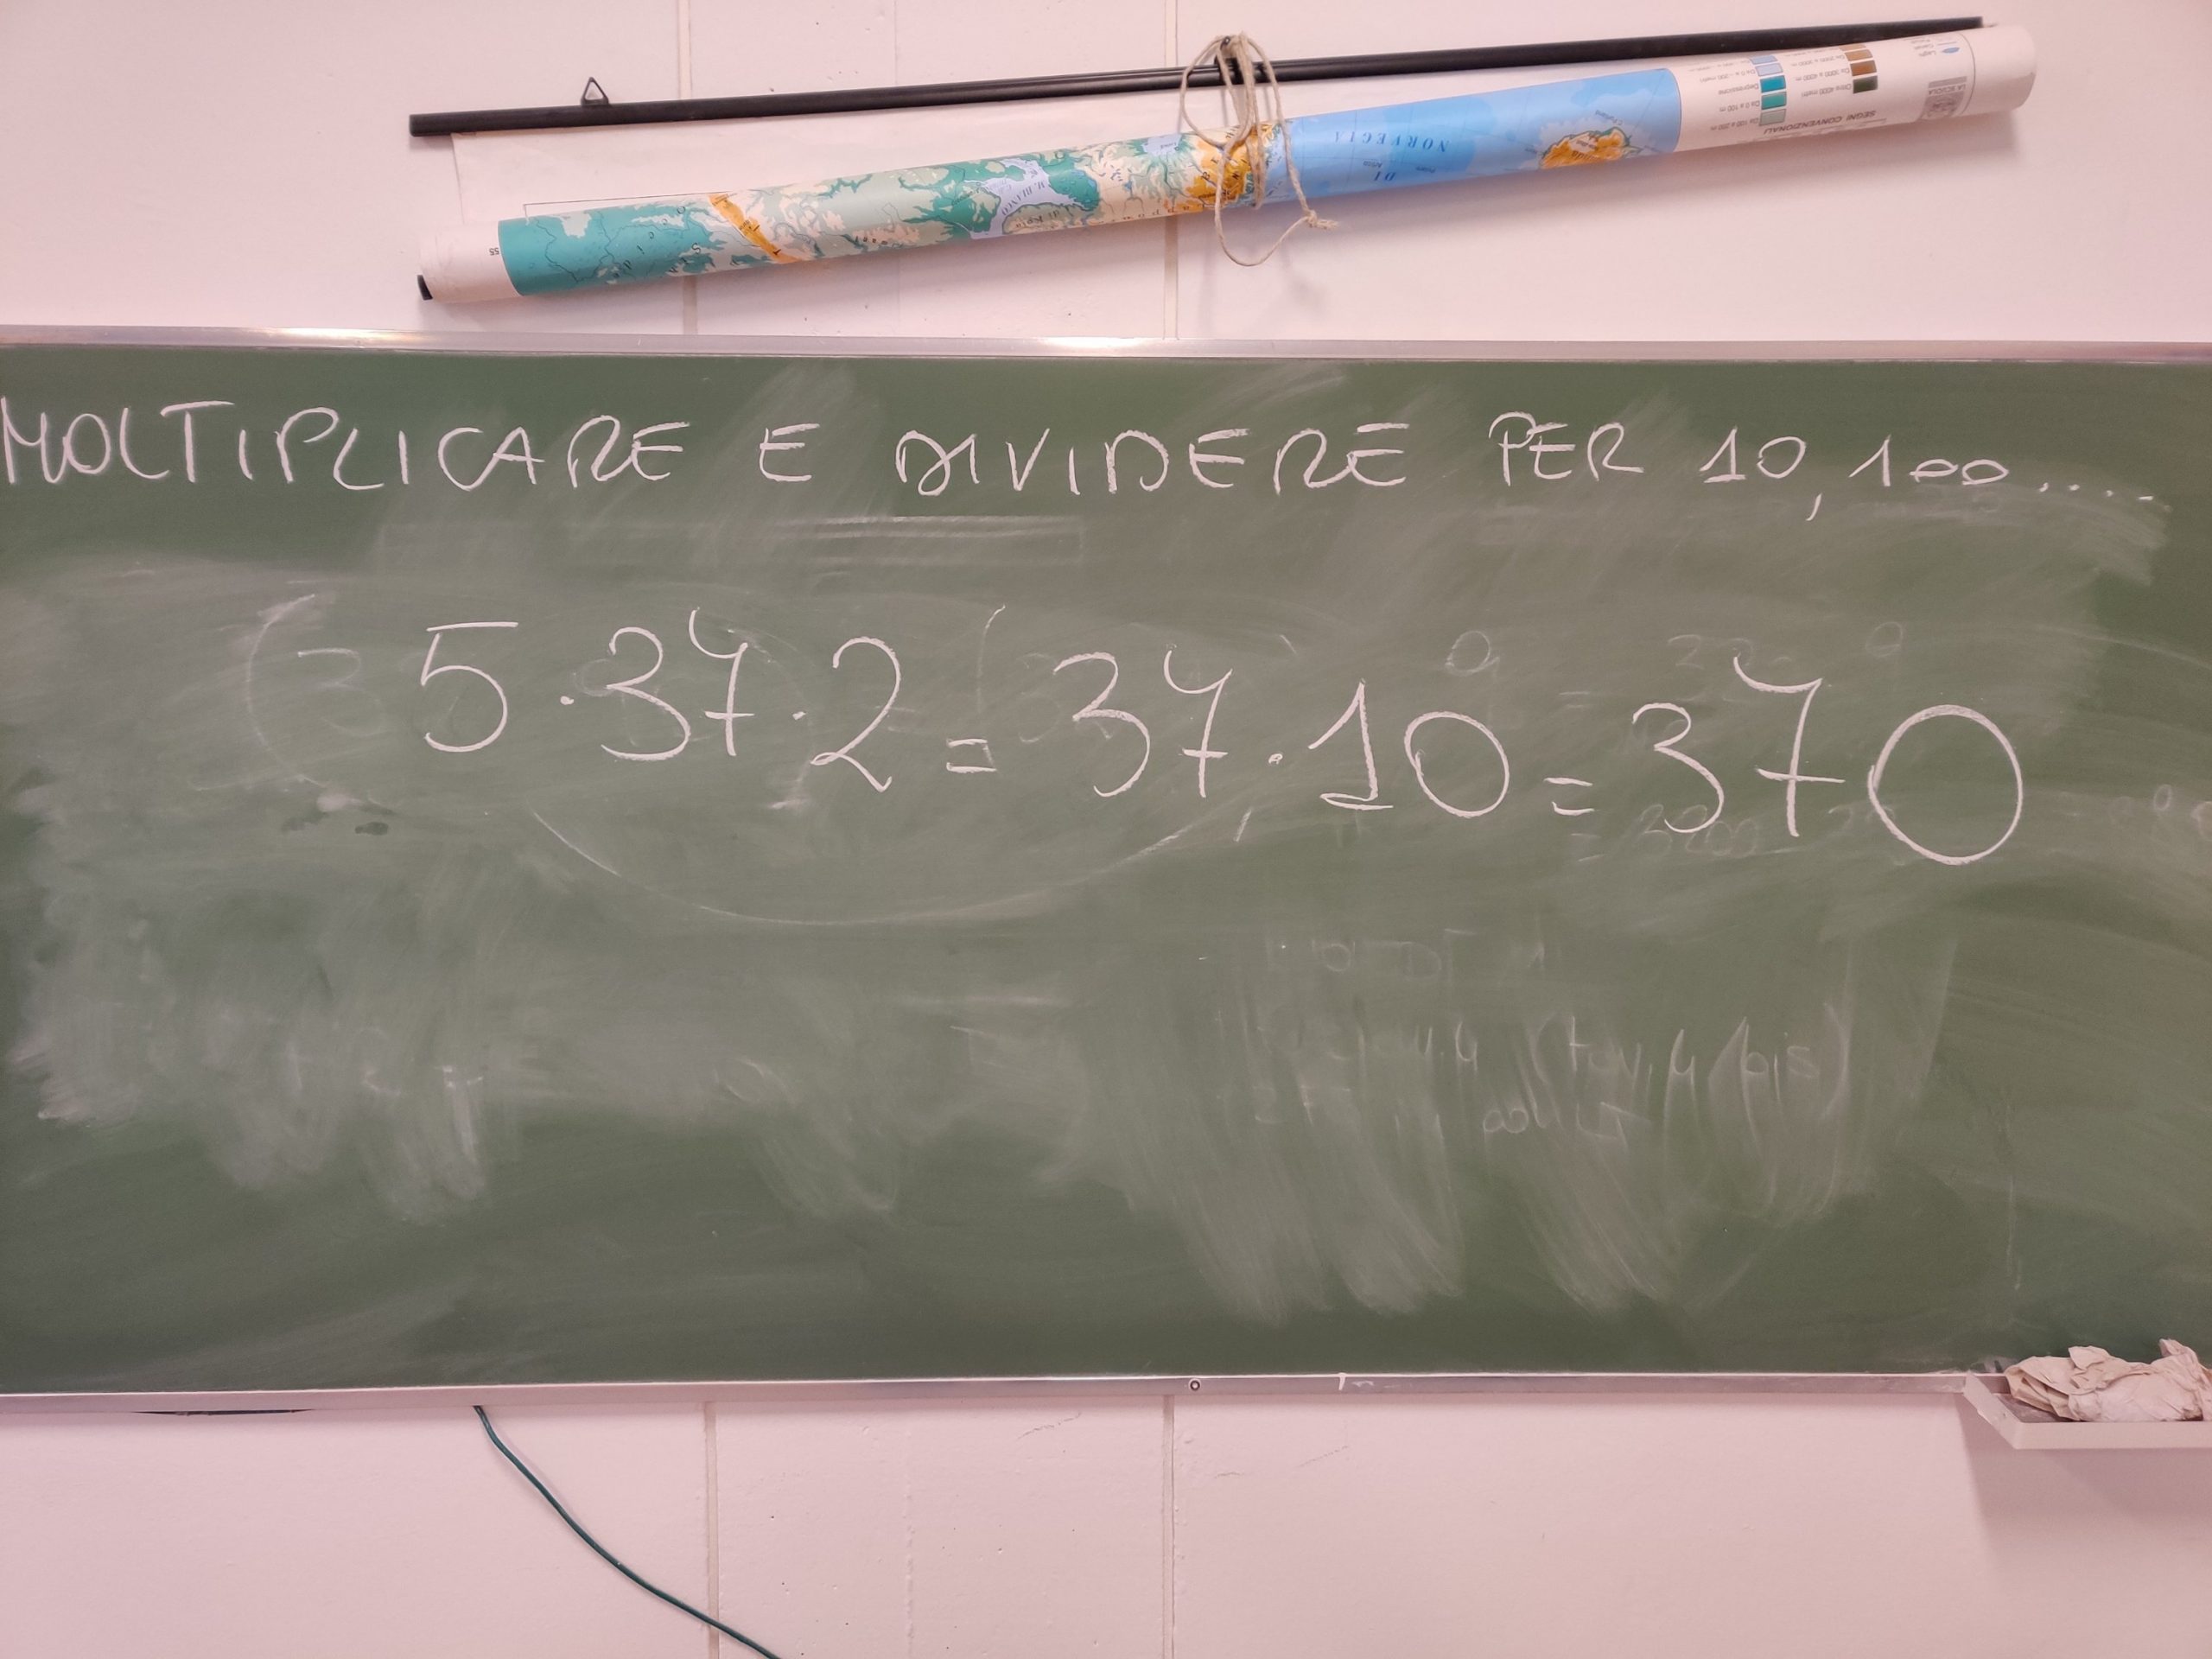 SEGNI CONVENZIONALI
NORVEGIA
DI
M. BIANCO
55
MOLTIPLICARE E DIVIDERE PER 10, 100.....
5 · 37 · 2 = 37 · 10 = 370